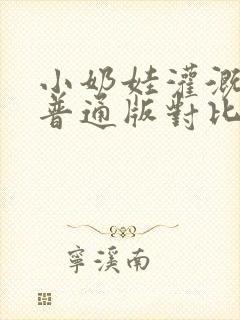 小奶娃灌溉
普通版對比
寧溪南